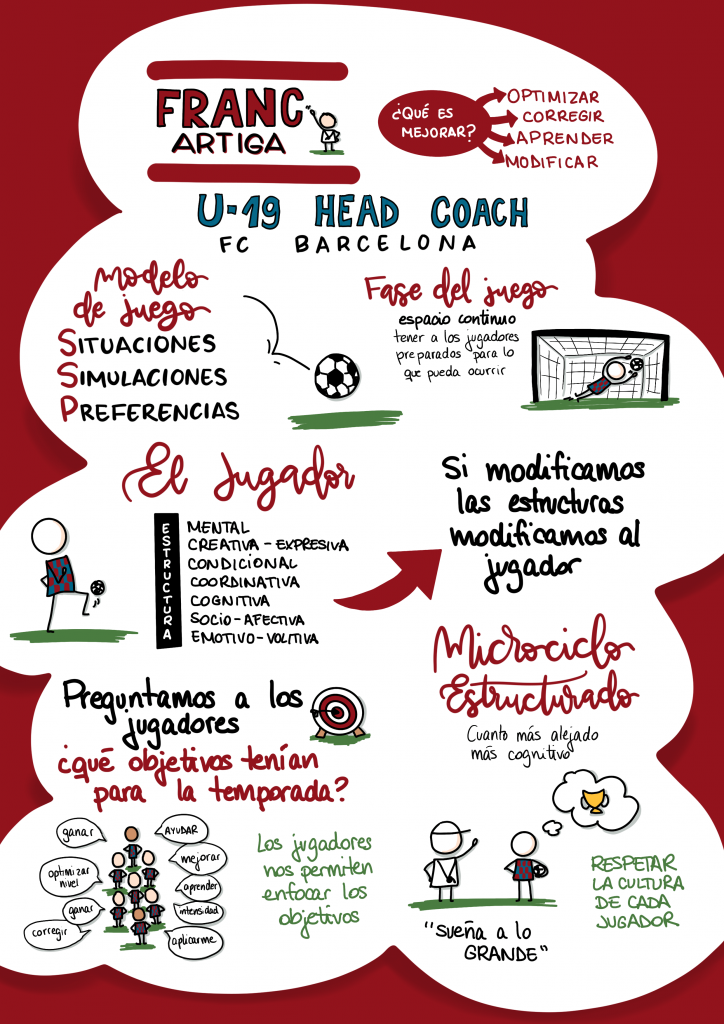 FRANC
ARTIGA
¿QUÉ ES
MEJORAR?
OPTIMIZAR
CORREGIR
APRENDER
MODIFICAR
U-19 HEAD COACH
FC BARCELONA
Modelo
de juego
SITUACIONES
SIMULACIONES
PREFERENCIAS
Fase del juego
espacio continuo
tener a los jugadores
preparados para lo
que pueda ocurrir
El Jugador
ESTRUCTURA
MENTAL
CREATIVA-EXPRESIVA
CONDICIONAL
COORDINATIVA
COGNITIVA
SOCIO-AFECTIVA
EMOTIVO-VOLITIVA
Si modificamos
las estructuras
modificamos al
jugador
Microciclo
Estructurado
Cuanto más alejado
más cognitivo
Preguntamos a los
jugadores
¿qué objetivos tenían
para la temporada?
ganar
optimizar
nivel
ganar
corregir
AYUDAR
mejorar
aprender
intensidad
aplicarme
Los jugadores
nos permiten
enfocar los
objetivos
"sueña a lo
GRANDE"
RESPETAR
LA CULTURA
DE CADA
JUGADOR